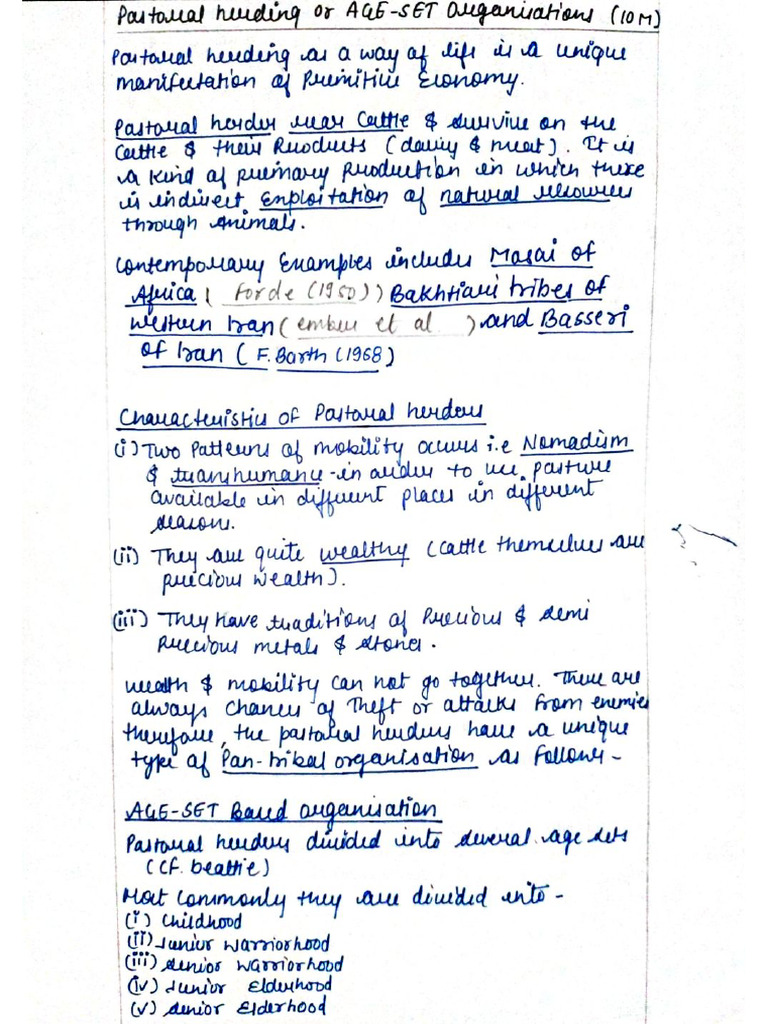 Pastoral herding or AGE-SET Organisations (10M)
Pastoral herding as a way of life is a unique
manifestation of Primitive Economy.
Pastoral herder rear Cattle & survive on the
Cattle & their Products (dairy & meat). It is
a kind of primary Production in which there
is indirect Exploitation of natural resources
through Animals.
Contemporary Examples includes Masai of
Africa ( Forde (1950)) Bakhtiari tribes of
Western Iran (ember et al ) and Basseri
of Iran ( F. Barth (1968)
Characteristics of Pastoral herders
(i) Two Patterns of mobility occurs i.e Nomadism
& transhumance - in order to use pasture
available in different places in different
seasons.
(ii) They are quite wealthy (cattle themselves are
precious wealth).
(iii) They have traditions of Precious & semi
Precious metals & stones.
Wealth & mobility can not go together. There are
always chances of Theft or attacks from enemies
therefore, the pastoral herders have a unique
type of Pan-tribal organisation as follows -
AGE-SET Based organisation
Pastoral herders divided into several age sets
(cf. beattie)
Most commonly they are divided into -
(i) Childhood
(ii) Junior Warriorhood
(iii) senior Warriorhood
(iv) Junior Elderhood
(v) senior Elderhood